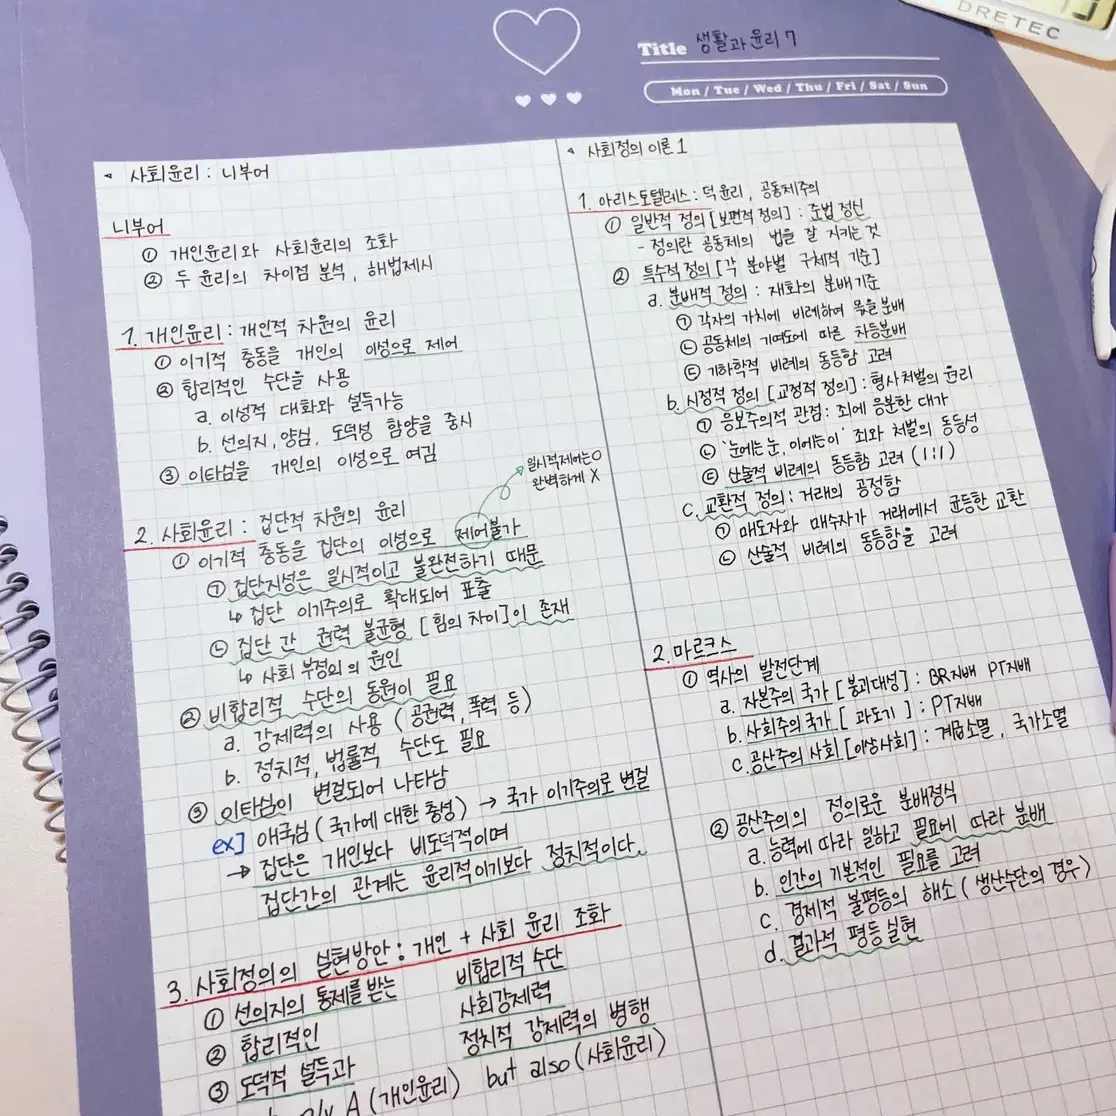 DRETEC
Title 생활과 윤리 7
Mon / Tue / Wed / Thu / Fri / Sat / Sun
사회윤리 : 니부어
니부어
① 개인윤리와 사회윤리의 조화
② 두 윤리의 차이점 분석, 해법제시
1. 개인윤리 : 개인적 차원의 윤리
① 이기적 충동을 개인의 이성으로 제어
② 합리적인 수단을 사용
a. 이성적 대화와 설득가능
b. 선의지, 양심, 도덕성 함양을 중시
③ 이타심을 개인의 이성으로 여김
일시적제어는O
완벽하게 X
2. 사회윤리 : 집단적 차원의 윤리
① 이기적 충동을 집단의 이성으로 제어불가
㉠ 집단지성은 일시적이고 불완전하기 때문
↳ 집단 이기주의로 확대되어 표출
㉡ 집단 간 권력 불균형 [힘의 차이]이 존재
↳ 사회 부정의의 원인
② 비합리적 수단의 동원이 필요
a. 강제력의 사용 (공권력, 폭력 등)
b. 정치적, 법률적 수단도 필요
③ 이타심이 변질되어 나타남
ex] 애국심 (국가에 대한 충성) → 국가 이기주의로 변질
→ 집단은 개인보다 비도덕적이며
집단간의 관계는 윤리적이기보다 정치적이다.
3. 사회정의의 실현방안 : 개인 + 사회 윤리 조화
① 선의지의 통제를 받는 비합리적 수단
② 합리적인 사회강제력
③ 도덕적 설득과 정치적 강제력의 병행
only A (개인윤리) but also (사회윤리)
사회정의 이론 1
1. 아리스토텔레스 : 덕 윤리, 공동체주의
① 일반적 정의 [보편적 정의] : 준법 정신
- 정의란 공동체의 법을 잘 지키는 것
② 특수적 정의 [각 분야별 구체적 기준]
a. 분배적 정의 : 재화의 분배기준
㉠ 각자의 가치에 비례하여 몫을 분배
㉡ 공동체의 기여도에 따른 차등분배
㉢ 기하학적 비례의 동등함 고려
b. 시정적 정의 [교정적 정의] : 형사처벌의 윤리
㉠ 응보주의적 관점 : 죄에 응분한 대가
㉡ '눈에는 눈, 이에는 이' 죄와 처벌의 동등성
㉢ 산술적 비례의 동등함 고려 (1:1)
c. 교환적 정의 : 거래의 공정함
㉠ 매도자와 매수자가 거래에서 균등한 교환
㉡ 산술적 비례의 동등함을 고려
2. 마르크스
① 역사의 발전단계
a. 자본주의 국가 [붕괴대성] : BR지배 PT지배
b. 사회주의 국가 [과도기] : PT지배
c. 공산주의 사회 [이상사회] : 계급소멸, 국가소멸
② 공산주의의 정의로운 분배정식
a. 능력에 따라 일하고 필요에 따라 분배
b. 인간의 기본적인 필요를 고려
c. 경제적 불평등의 해소 (생산수단의 경우)
d. 결과적 평등 실현